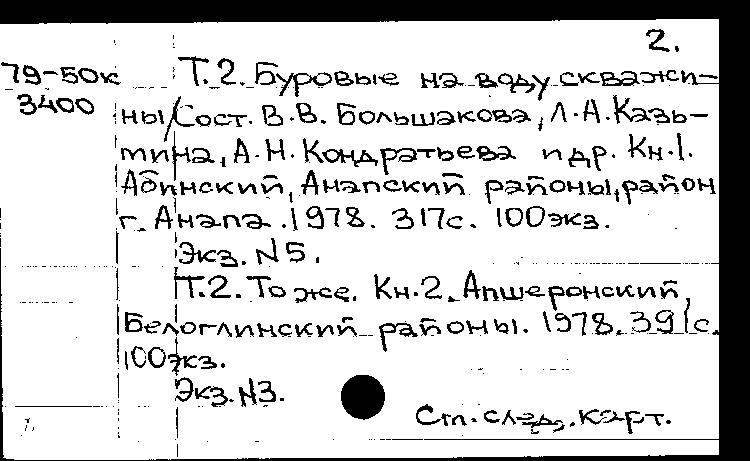 2.
79-50к Т.2. Буровые на воду скважи-
3400 ны/Сост. В.В. Большакова, Л.А. Казь-
мина, А.Н. Кондратьева и др. Кн.1.
Абинский, Анапский районы, район
г. Анапа. 1978. 317с. 100экз.
Экз. N5.
Т.2. То же. Кн.2. Апшеронский,
Белоглинский районы. 1978. 391с.
100экз.
Экз. N3.
См. след. карт.